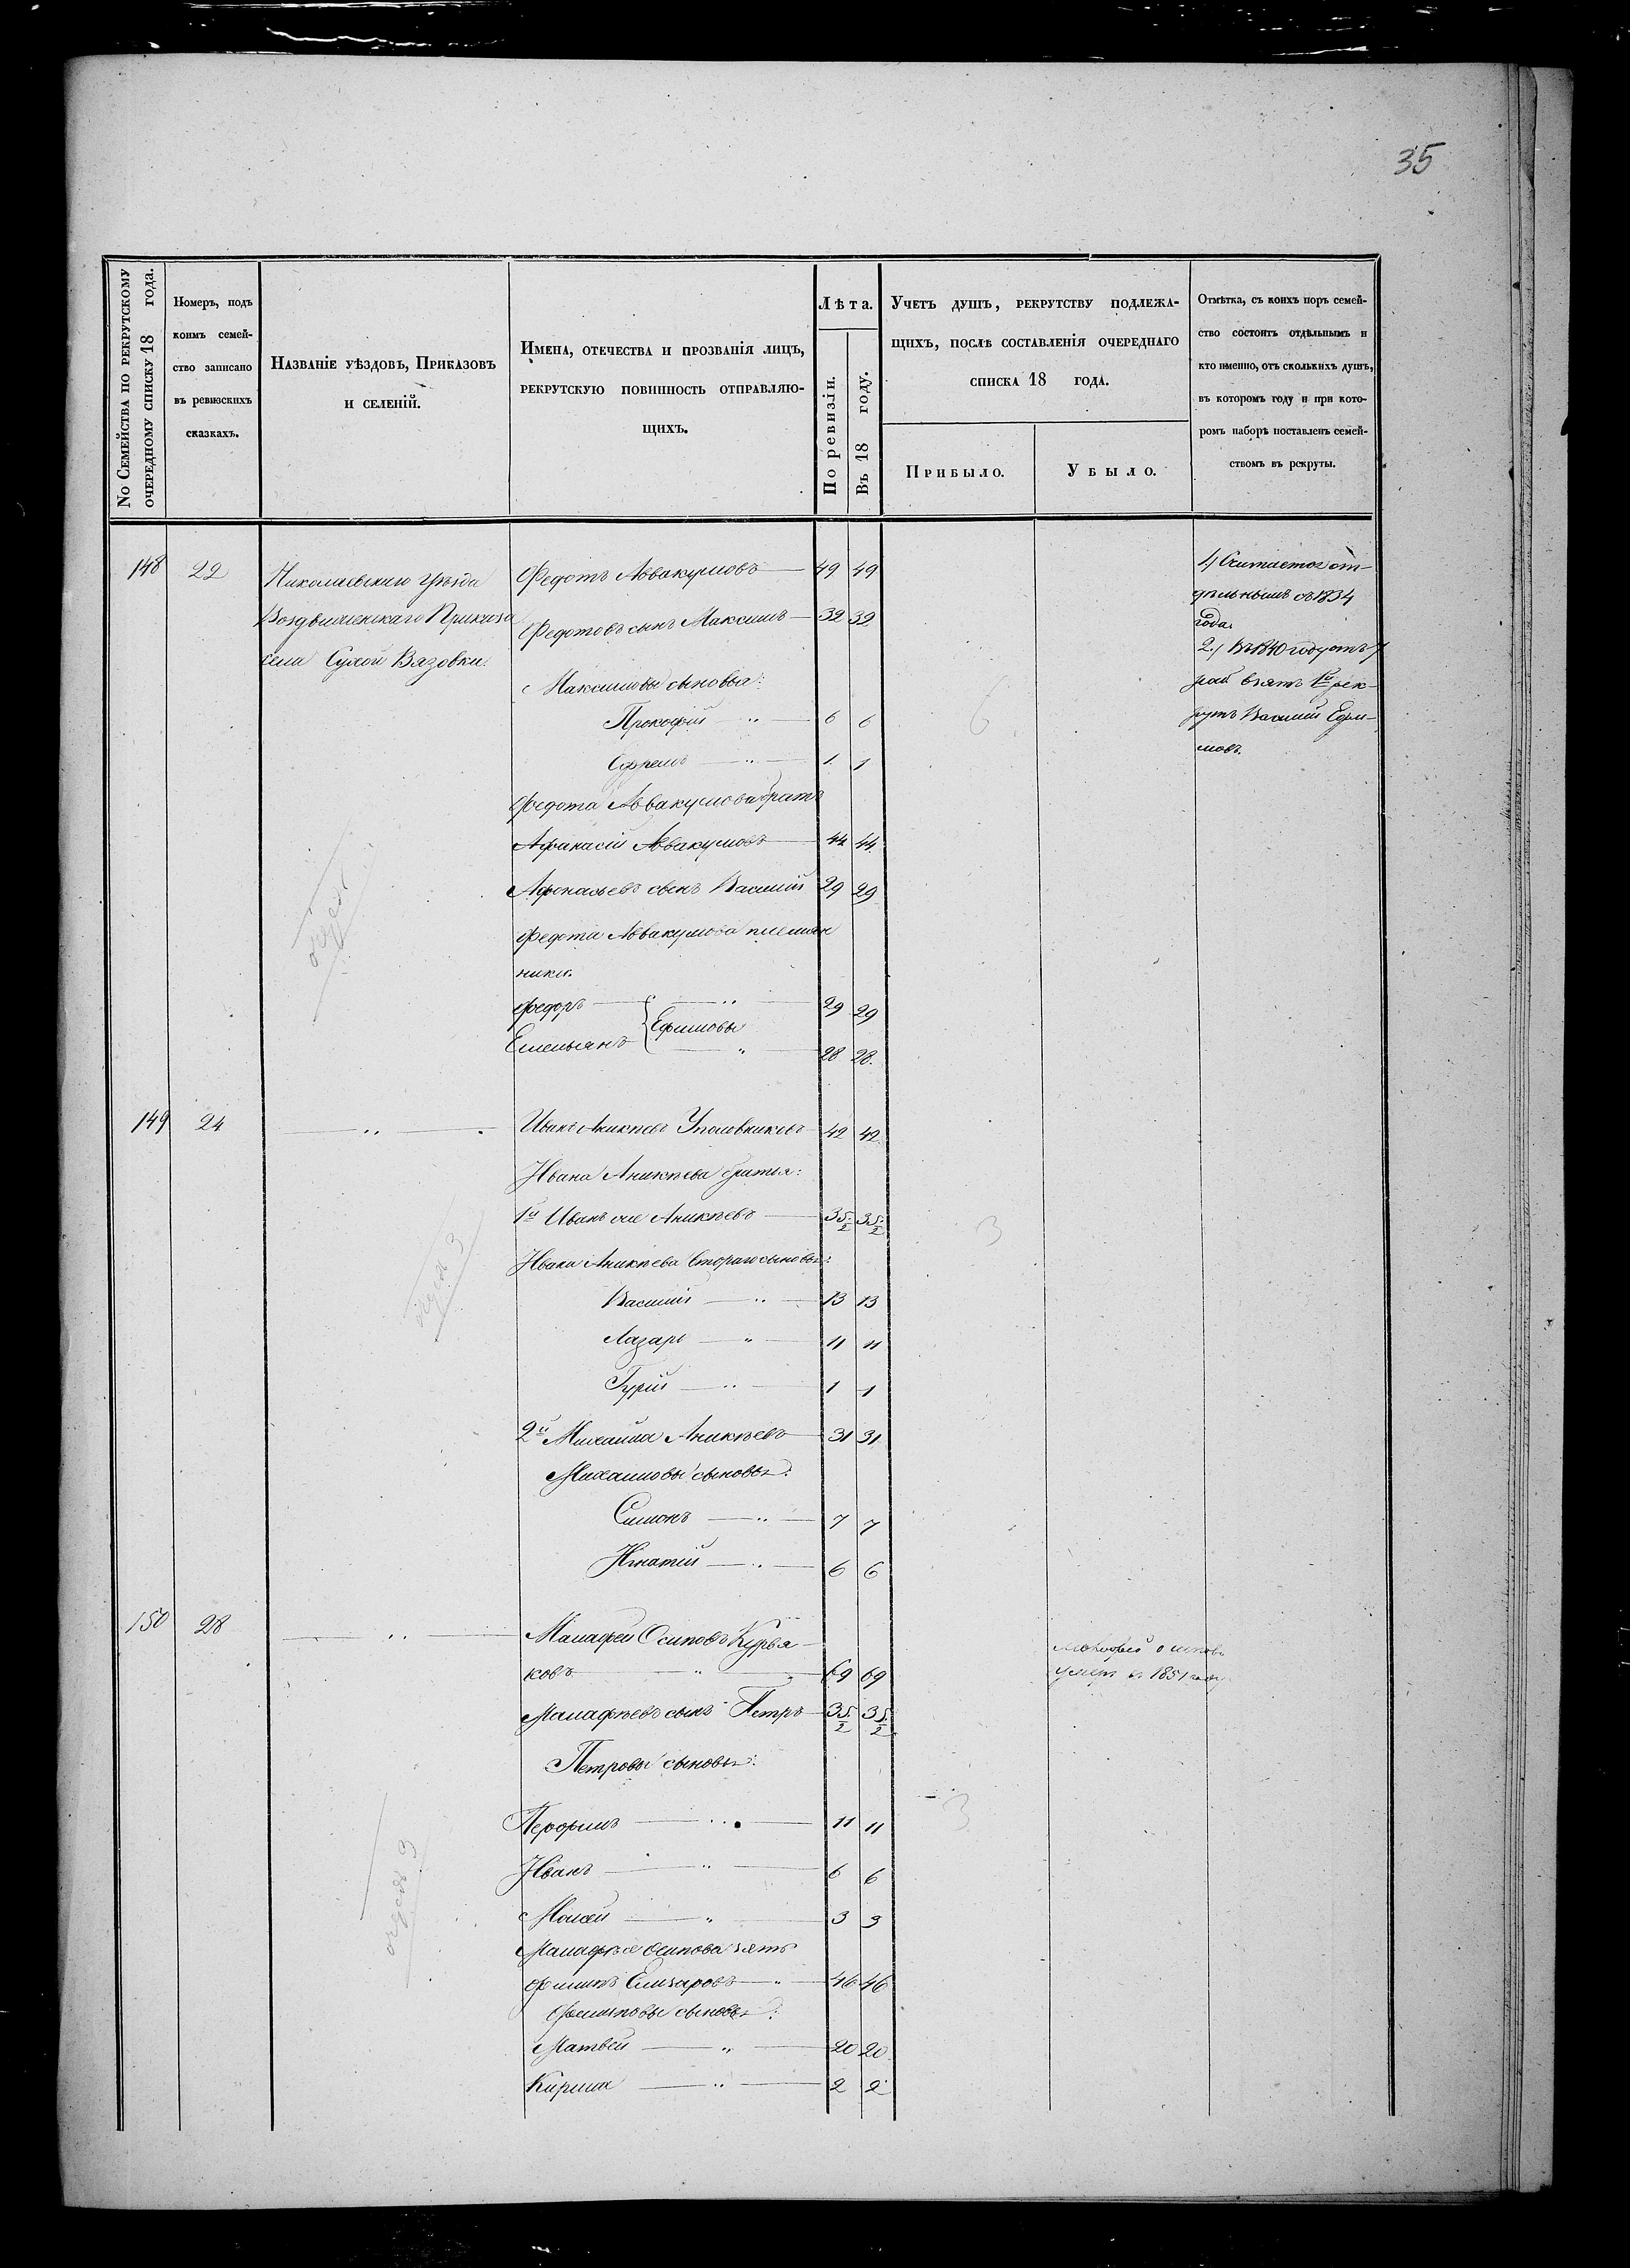 35
No Семейства по рекрутскому
очередному списку 18 года.
Номеръ, подъ
коимъ семей-
ство записано
въ ревизскихъ
сказкахъ.
Названіе уѣздовъ, Приказовъ
и селеній.
Имена, отечества и прозванія лицъ,
рекрутскую повинность отправляю-
щихъ.
Лѣта.
По ревизіи.
Въ 18 году.
Учетъ душъ, рекрутству подлежа-
щихъ, послѣ составленія очереднаго
списка 18 года.
Прибыло.
Убыло.
Отмѣтка, съ коихъ поръ семей-
ство состоитъ отдѣльнымъ и
кто именно, отъ сколькихъ душъ,
въ которомъ году и при кото-
ромъ наборѣ поставленъ семей-
ствомъ въ рекруты.
148 22 Николаевскаго Уѣзда
Воздвиженскаго Приказа
села Сухой Вязовки.
Федотъ Аввакумовъ 49 49
Федотовъ сынъ Максимъ 32 32
Максимовы сыновья:
Прокофій 6 6
Ефремъ 1 1
Федота Аввакумова братъ
Афанасій Аввакумовъ 44 44
Афонасьевъ сынъ Василій 29 29
Федота Аввакумова племян
ники.
Федоръ 29 29
Ефимовы
Емельянъ 28 28
6
1) Считается от-
дѣльнымъ съ 1834
года.
2) Въ 1840 году отъ 7
взятъ рек-
рутъ Василій Ефи-
мовъ.
149 24 Иванъ Аникѣевъ 42 42
Ивана Аникѣева братья:
1й Иванъ же Аникѣевъ 35 1/2 35 1/2
Ивана Аникѣева втораго сыновья:
Василій 13 13
Лазарь 11 11
Гурій 1 1
2й Михайла Аникѣевъ 31 31
Михайловы сыновья:
Симонъ 7 7
Игнатій 6 6
3
150 28 Малафей Осиповъ Курья
ковъ 69 69
Малафѣевъ сынъ Петръ 35 1/2 35 1/2
Петровы сыновья:
Перфилъ 11 11
Иванъ 6 6
Моисей 3 3
Малафѣя Осипова зять
Филипъ Елизаровъ 46 46
Филиповы сыновья:
Матвей 20 20
Кирила 2 2
3
Малафей Осиповъ
умеръ въ 1851 году